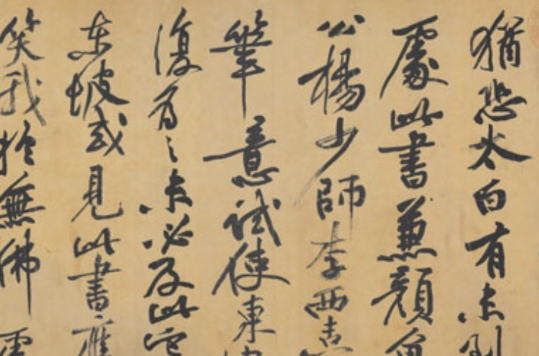 猶恐太白有未到
處此書兼顔魯
公楊少師李西臺
筆意試使東坡
復為之未必及此它日
東坡或見此書應
笑我於無佛處